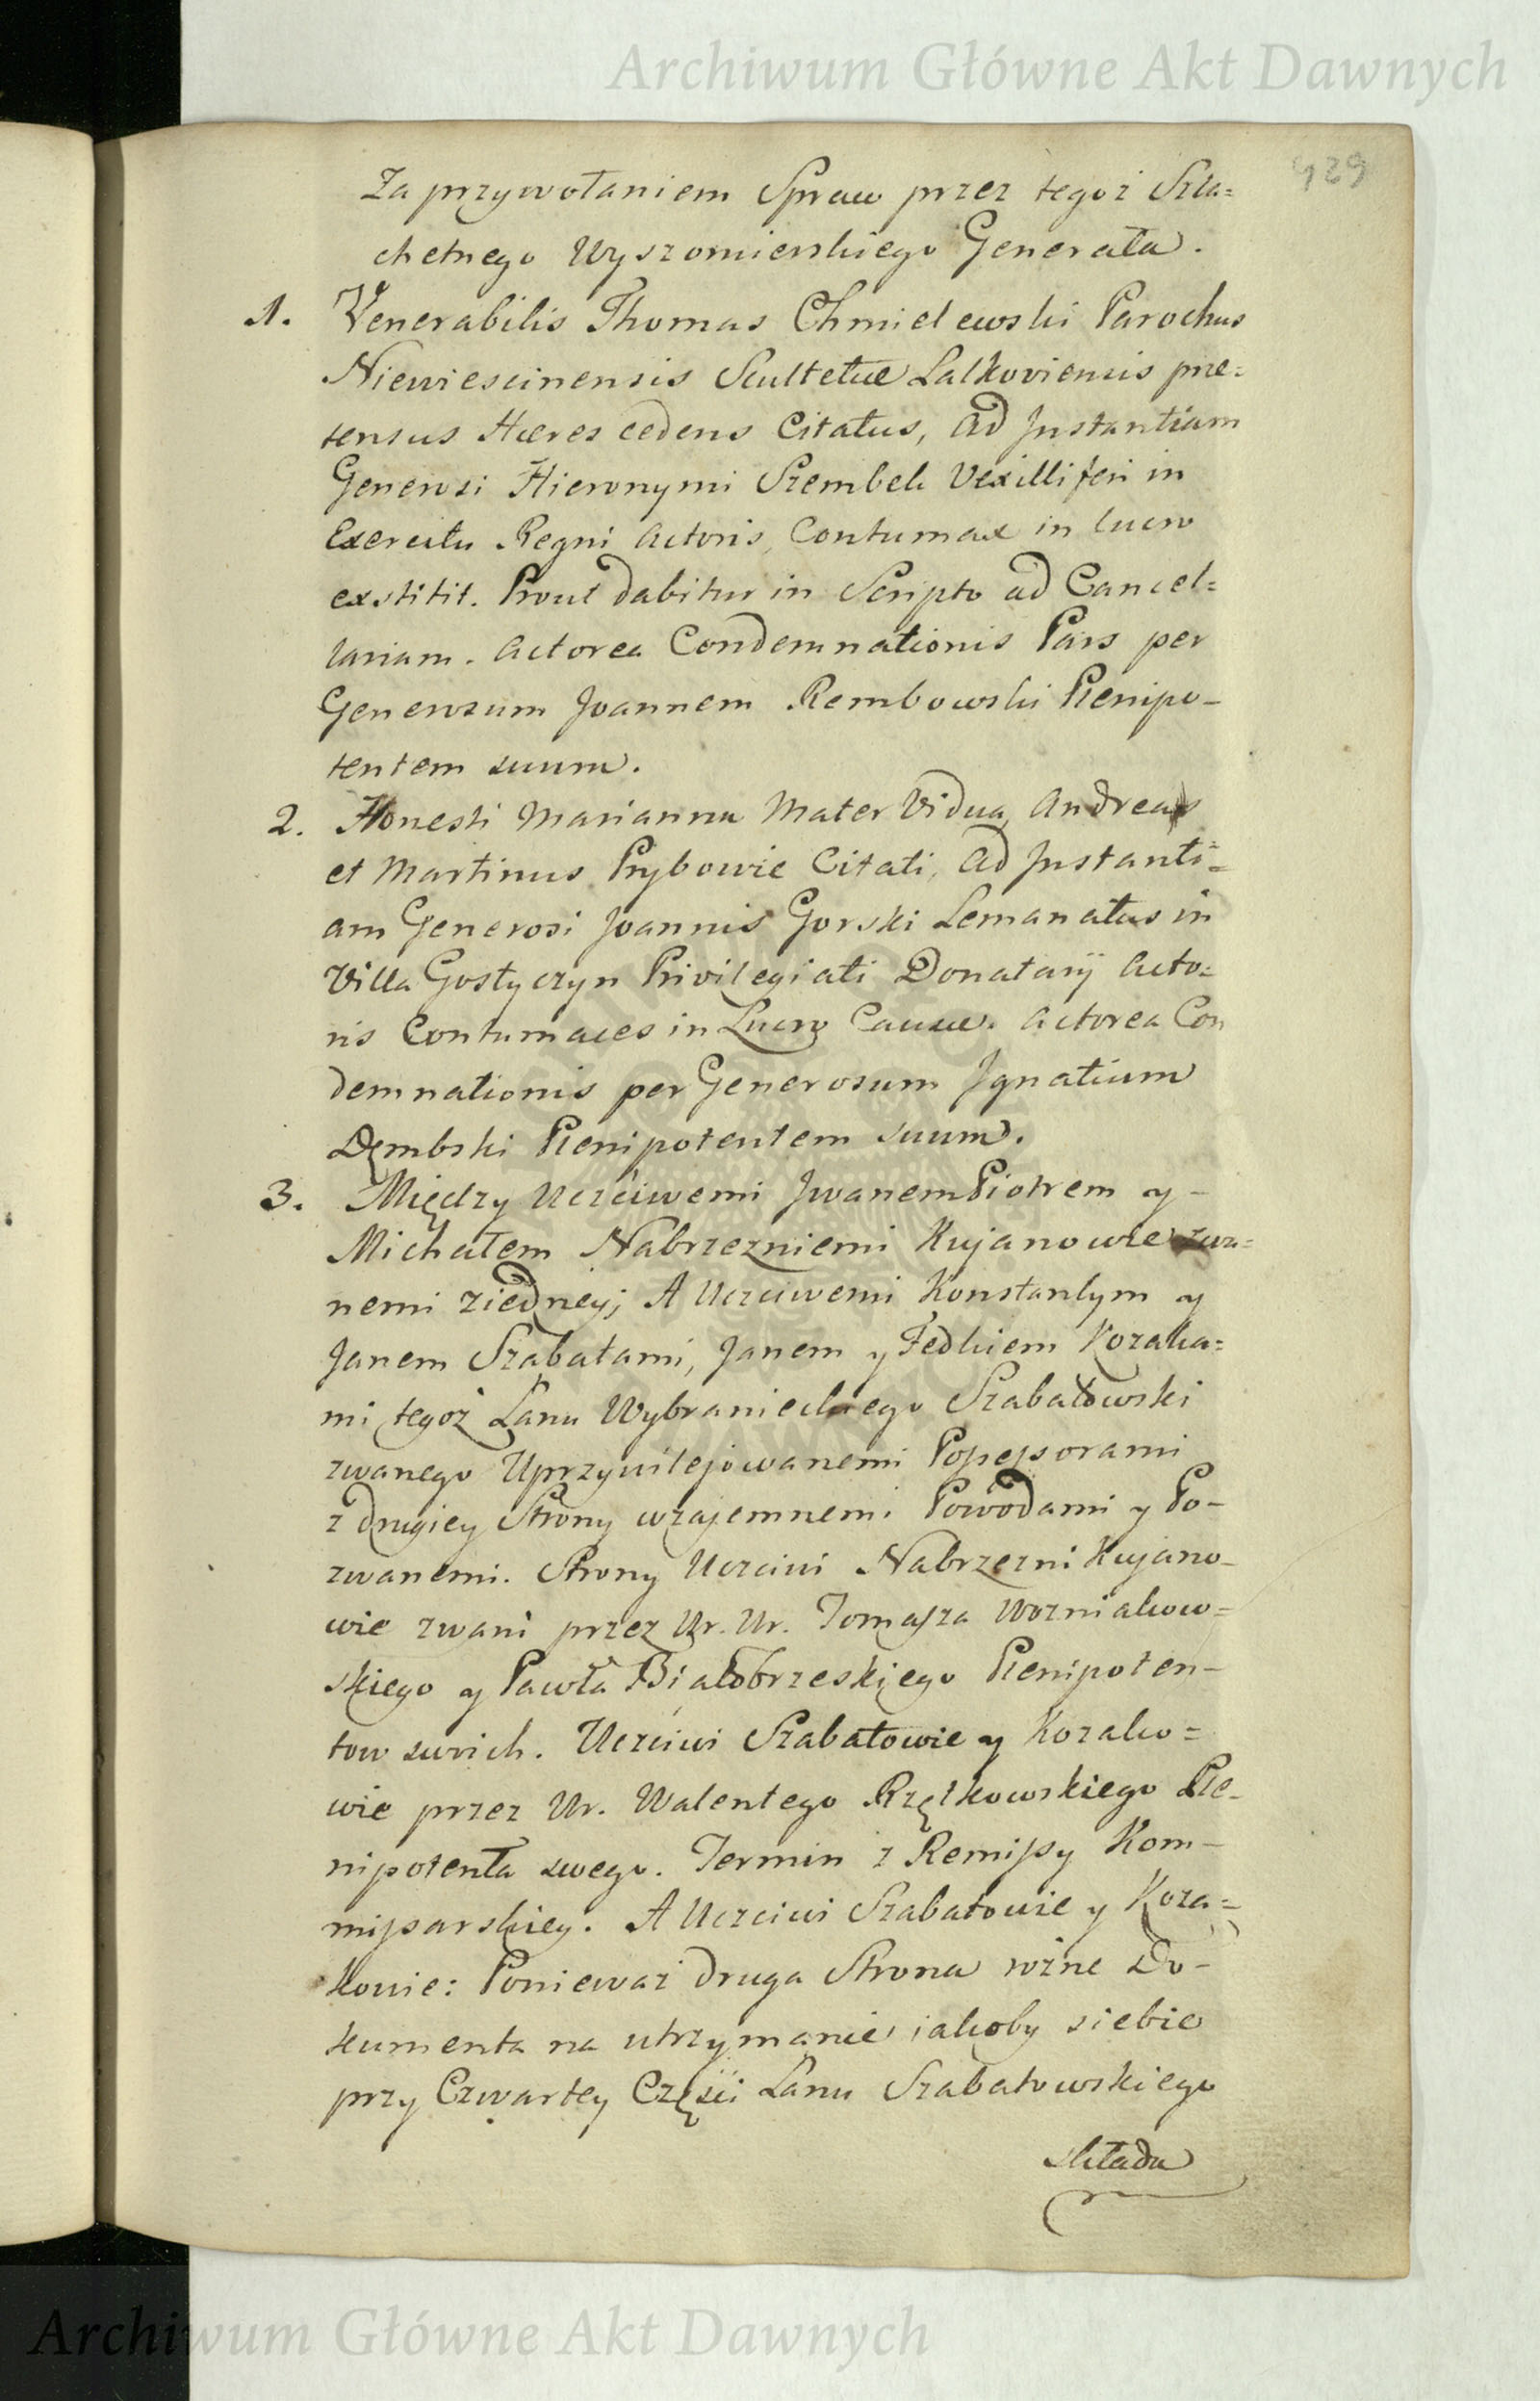 Archiwum Główne Akt Dawnych
429
Za przywołaniem Spraw przez tegoż Szla=
chetnego Wyszomierskiego Generała.
1. Venerabilis Thomas Chmielewski Parochus
Niewiescinensis Scultetiæ Lalkoviensis præ=
tensus Hæres cedens Citatus, Ad Instantiam
Generosi Hieronymi Szembek Vexilliferi in
Exercitu Regni Actoris, Contumax in lucro
exstitit. Prout dabitur in Scripto ad Cancel=
lariam. Actorea Condemnationis Pars per
Generosum Joannem Rembowski Plenipo-
tentem suum.
2. Honesti Marianna Mater Vidua, Andreas
et Martinus Prybowie Citati, Ad Instanti=
am Generosi Joannis Gorski Lemanatus in
Villa Gostyczyn Privilegiati Donatarij Acto=
ris Contumaces in Lucro Causæ. Actorea Con
demnationis per Generosum Ignatium
Dęmbski Plenipotentem suum.
3. Między Uczciwemi Iwanem Piotrem y-
Michałem Nabrzezniemi Kujanowie zwa=
nemi ziedney; A Uczciwemi Konstantym y
Janem Szabatami, Janem y Fedkiem Kozaka=
mi tegoż Łanu Wybranieckiego Szabatowski
zwanego Uprzywilejowanemi Possessorami
z drugiey Strony wzajemnemi Powodami y Po-
zwanemi. Strony Uczciwi Nabrzezni Kujano-
wie zwani przez Ur. Ur. Tomasza Wozniakow=
skiego y Pawła Białobrzeskiego Plenipoten-
tow swich. Uczciwi Szabatowie y Kozako=
wie przez Ur. Walentego Rzętkowskiego Ple-
nipotenta swego. Termin z Remissy Kom-
missarskiey. A Uczciwi Szabatowie y Koza=
kowie: Ponieważ druga Strona rożne Do-
kumenta na utrzymanie iakoby siebie
przy Czwartey Częsci Łanu Szabatowskiego
składa
Archiwum Główne Akt Dawnych